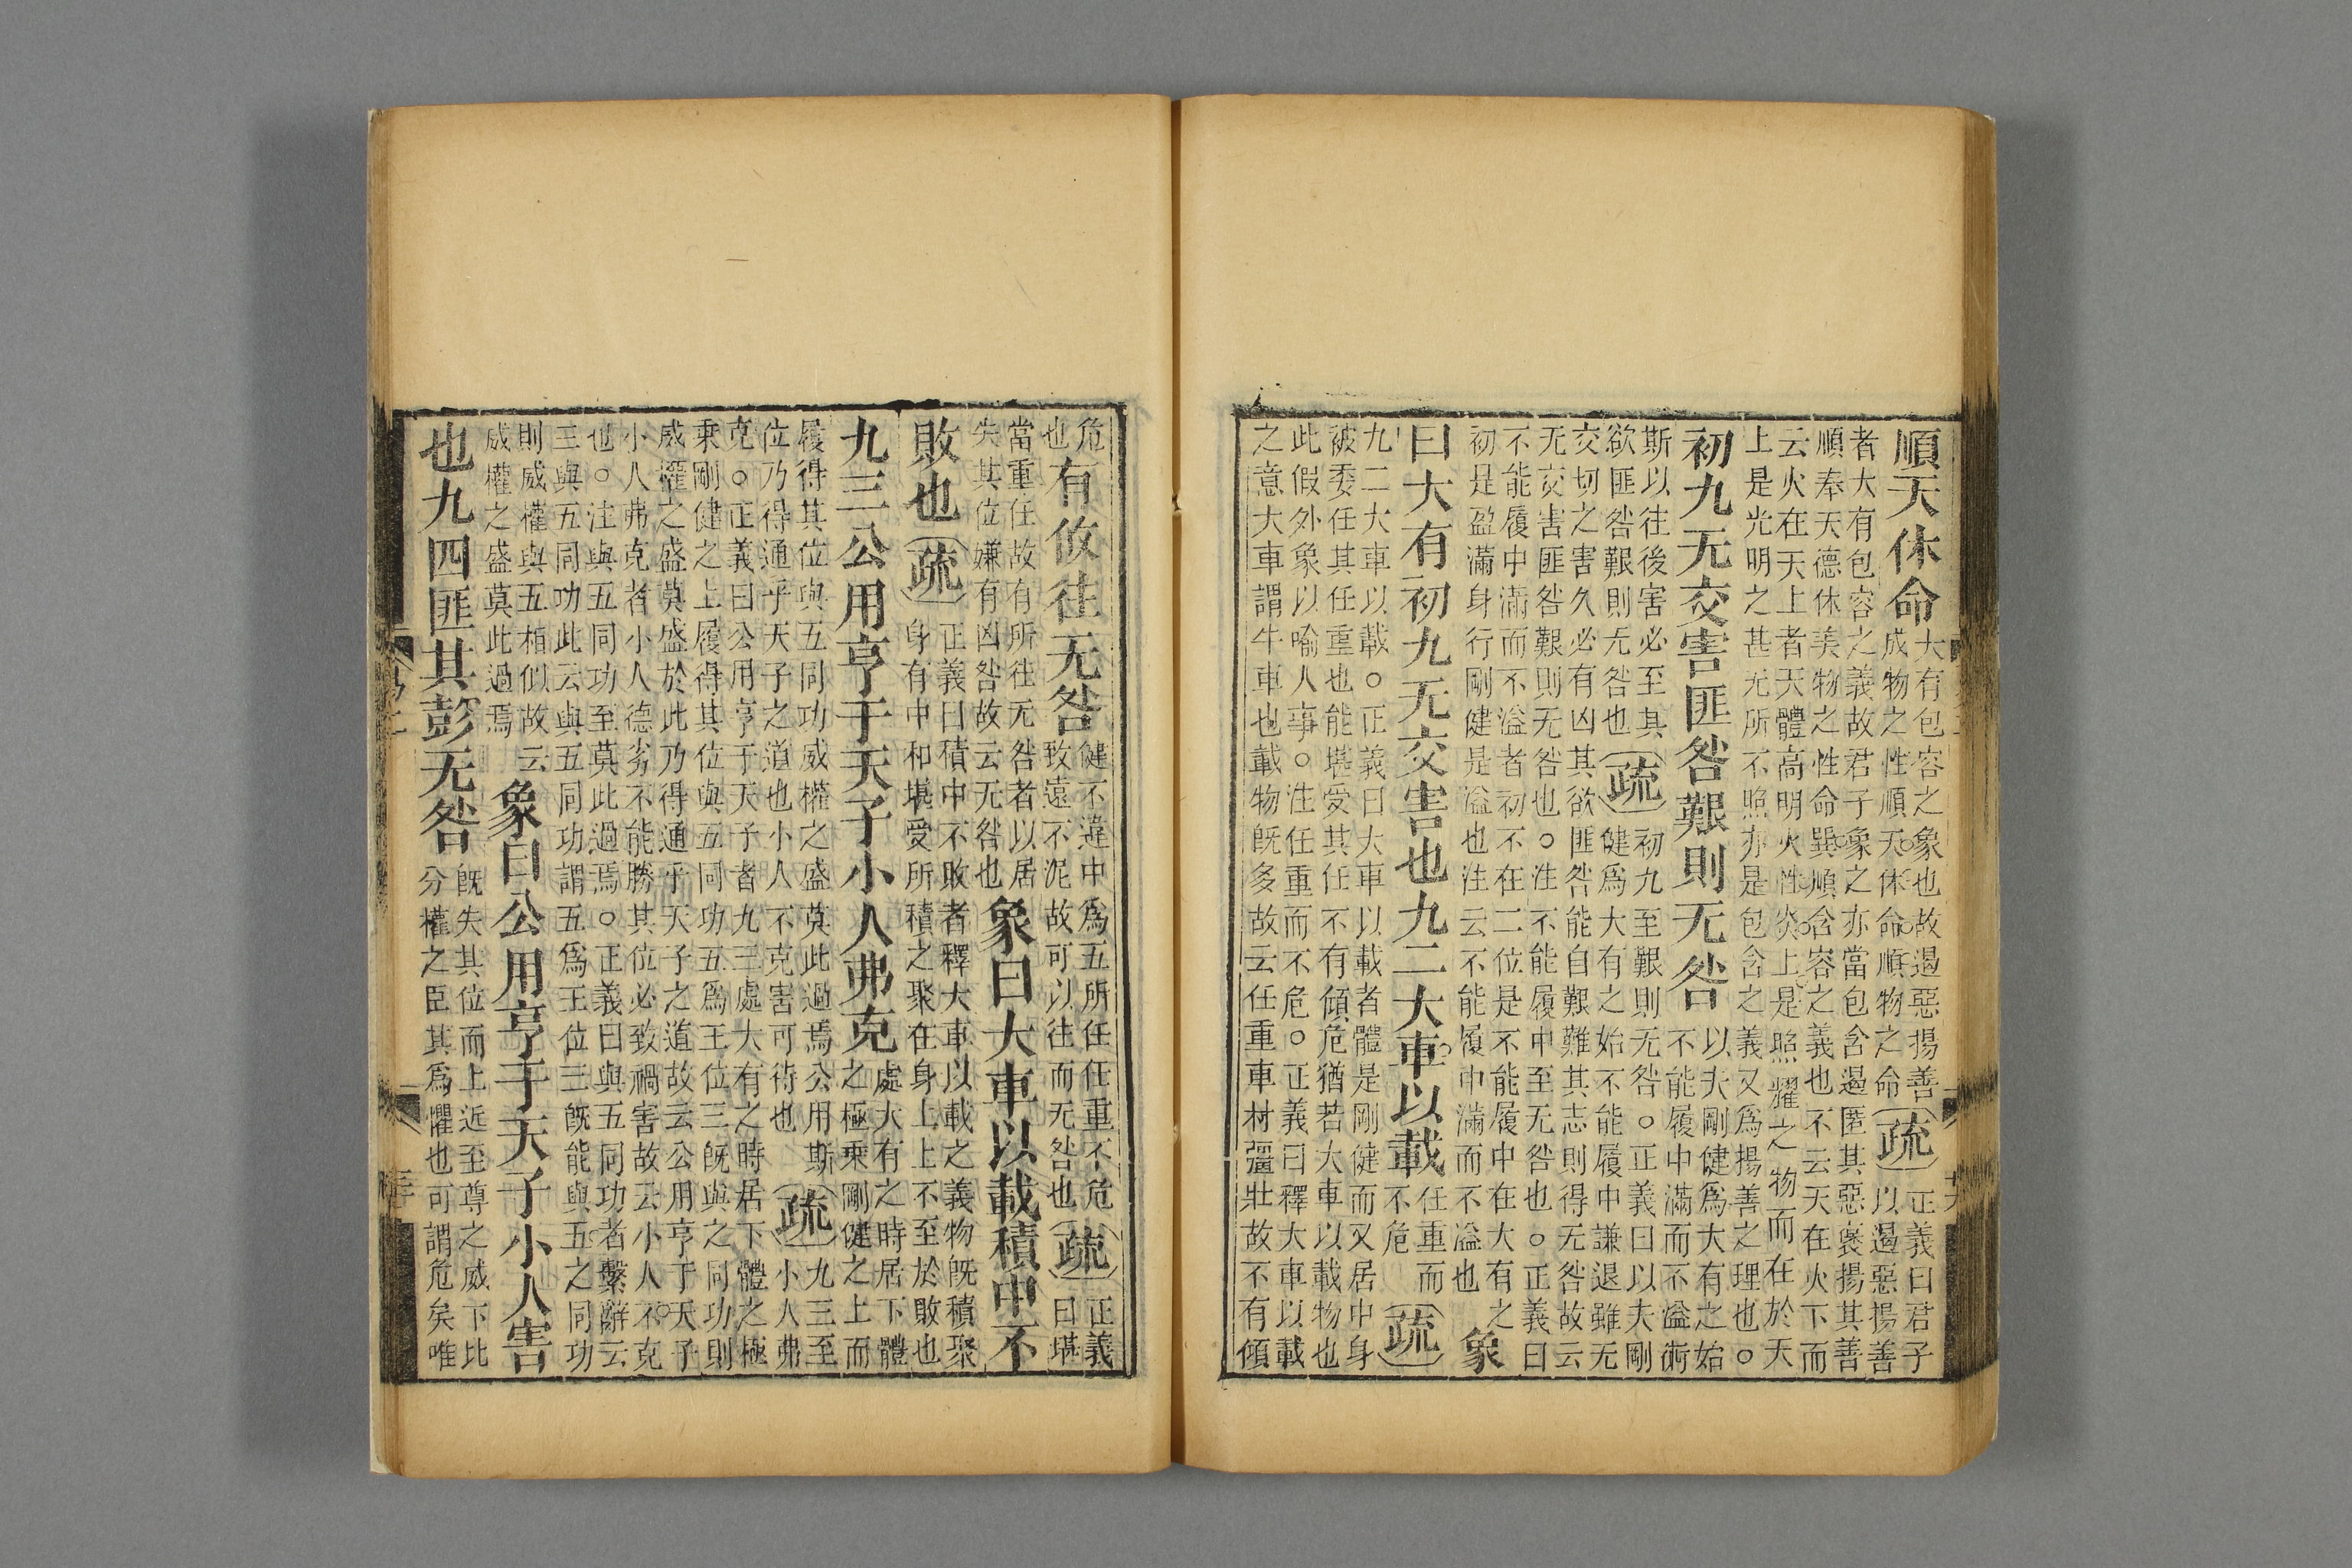 順天休命
大有包容之象也故遏惡揚善
成物之性順天休命順物之命
疏
正義曰君子
以遏惡揚善
者大有包容之義故君子象之亦當包含遏匿其惡褒揚其善
順奉天德休美物之性命巽順含容之義也不云天在火下而
云火在天上者天體高明火性炎上是照耀之物而在於天
上是光明之甚无所不照亦是包含之義又爲揚善之理也○
初九无交害匪咎艱則无咎
以夫剛健爲大有之始
不能履中滿而不溢術
斯以往後害必至其
欲匪咎艱則无咎也
疏
初九至艱則无咎○正義曰以夫剛
健爲大有之始不能履中謙退雖无
交切之害久必有凶其欲匪咎能自艱難其志則得无咎故云
无交害匪咎艱則无咎也○注不能履中至无咎也○正義曰
不能履中滿而不溢者初不在二位是不能履中在大有之
初是盈滿身行剛健是溢也注云不能履中滿而不溢也
象
曰大有初九无交害也九二大車以載
任重而
不危
疏
九二大車以載○正義曰大車以載者體是剛健而又居中身
被委任其任重也能堪受其任不有傾危猶若大車以載物也
此假外象以喻人事○注任重而不危○正義曰釋大車以載
之意大車謂牛車也載物旣多故云任重車材彊壯故不有傾
危
也
有攸往无咎
健不違中爲五所任任重不危
致遠不泥故可以往而无咎也
疏
正義
曰堪
當重任故有所往无咎者以居
失其位嫌有凶咎故云无咎也
象曰大車以載積中不
敗也
疏
正義曰積中不敗者釋大車以載之義物旣積聚
身有中和堪受所積之聚在身上上不至於敗也
九三公用亨于天子小人弗克
處大有之時居下體
之極乘剛健之上而
履得其位與五同功威權之盛莫此過焉公用斯
位乃得通乎天子之道也小人不克害可待也
疏
九三至
小人弗
克○正義曰公用亨于天子者九三處大有之時居下體之極
乘剛健之上履得其位與五同功五爲王位三旣與之同功則
威權之盛莫盛於此乃得通乎天子之道故云公用亨于天子
小人弗克者小人德劣不能勝其位必致禍害故云小人不克
也○注與五同功至莫此過焉○正義曰與五同功者繫辭云
三與五同功此云與五同功謂五爲王位三旣能與五之同功
則威權與五相似故云
威權之盛莫此過焉
象曰公用亨于天子小人害
也九四匪其彭无咎
旣失其位而上近至尊之威下比
分權之臣其爲懼也可謂危矣唯